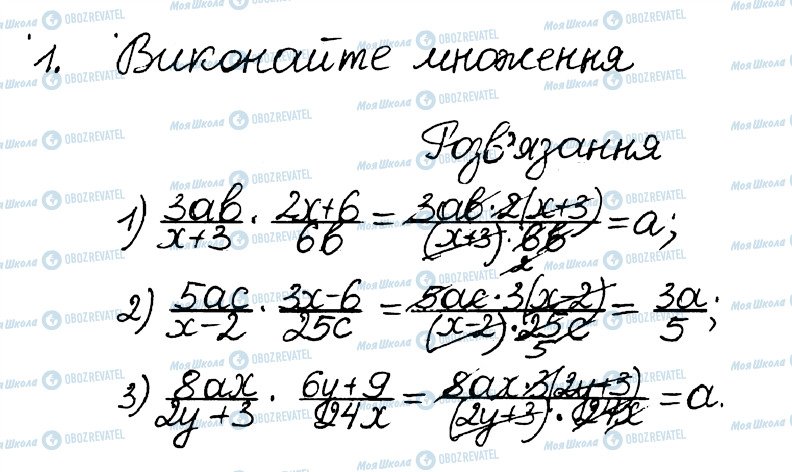 1. Виконайте множення
Розв'язання
1) 3ab/(x+3) · (2x+6)/6b = 3ab·2(x+3)/((x+3)·6b) = a;
2
2) 5ac/(x-2) · (3x-6)/25c = 5ac·3(x-2)/((x-2)·25c) = 3a/5;
5
3) 8ax/(2y+3) · (6y+9)/24x = 8ax·3(2y+3)/((2y+3)·24x) = a.